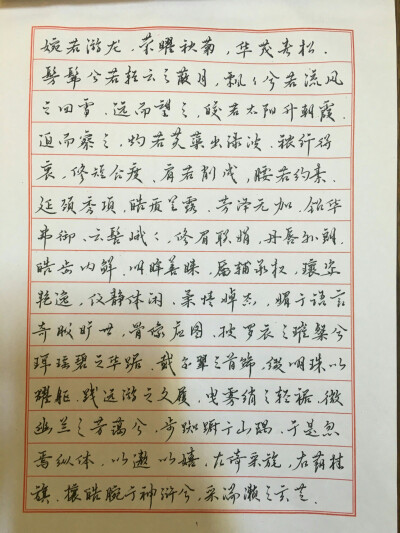 婉若游龙，荣曜秋菊，华茂春松．
髣髴兮若轻云之蔽月，飘飘兮若流风
之回雪．远而望之，皎若太阳升朝霞．
迫而察之，灼若芙蕖出渌波．秾纤得
衷，修短合度．肩若削成，腰若约素．
延颈秀项，皓质呈露．芳泽无加，铅华
弗御．云髻峨峨，修眉联娟．丹唇外朗．
皓齿内鲜．明眸善睐，靥辅承权．瓌姿
艳逸，仪静体闲．柔情绰态，媚于语言
奇服旷世，骨像应图．披罗衣之璀粲兮
珥瑶碧之华琚．戴金翠之首饰，缀明珠以
耀躯．践远游之文履，曳雾绡之轻裾．微
幽兰之芳蔼兮，步踟蹰于山隅．于是忽
焉纵体，以遨以嬉．左倚采旄，右荫桂
旗．攘皓腕于神浒兮，采湍濑之玄芝．